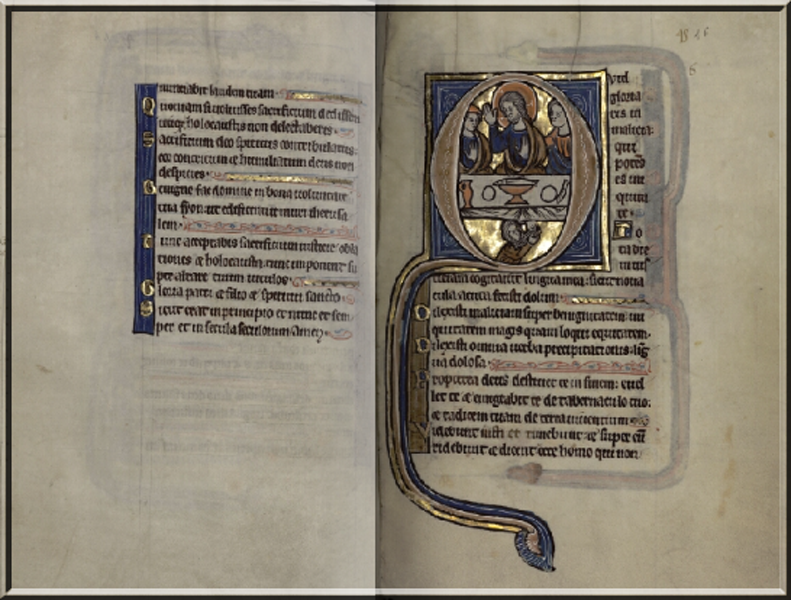 nunciabit laudem tuam.
Quoniam si uoluisses sacrificium dedissem
utiq; holocaustis non delectaberis.
Sacrificium deo spiritus contribulatus:
cor contritum & humiliatum deus non
despicies.
Benigne fac domine in bona uoluntate
tua syon: ut edificentur muri iherusa
lem.
Tunc acceptabis sacrificium iusticie obla
tiones & holocausta: tunc imponent su
per altare tuum uitulos.
Gloria patri & filio & spiritui sancto.
Sicut erat in principio et nunc et sem
per et in secula seculorum amen.
Quid
gloria
ris in
malicia:
qui
potens
es in
iniquita
te.
To
ta die
iniusti
ciam cogitauit lingua tua: sicut noua
cula acuta fecisti dolum.
Dilexisti maliciam super benignitatem: ini
quitatem magis quam loqui equitatem.
Dilexisti omnia uerba precipitationis: lig
ua dolosa.
Propterea deus destruet te in finem: euel
let te & emigrabit te de tabernaculo tuo:
& radicem tuam de terra uiuentium.
Videbunt iusti et timebunt & super eum
ridebunt & dicent: ecce homo qui non
6